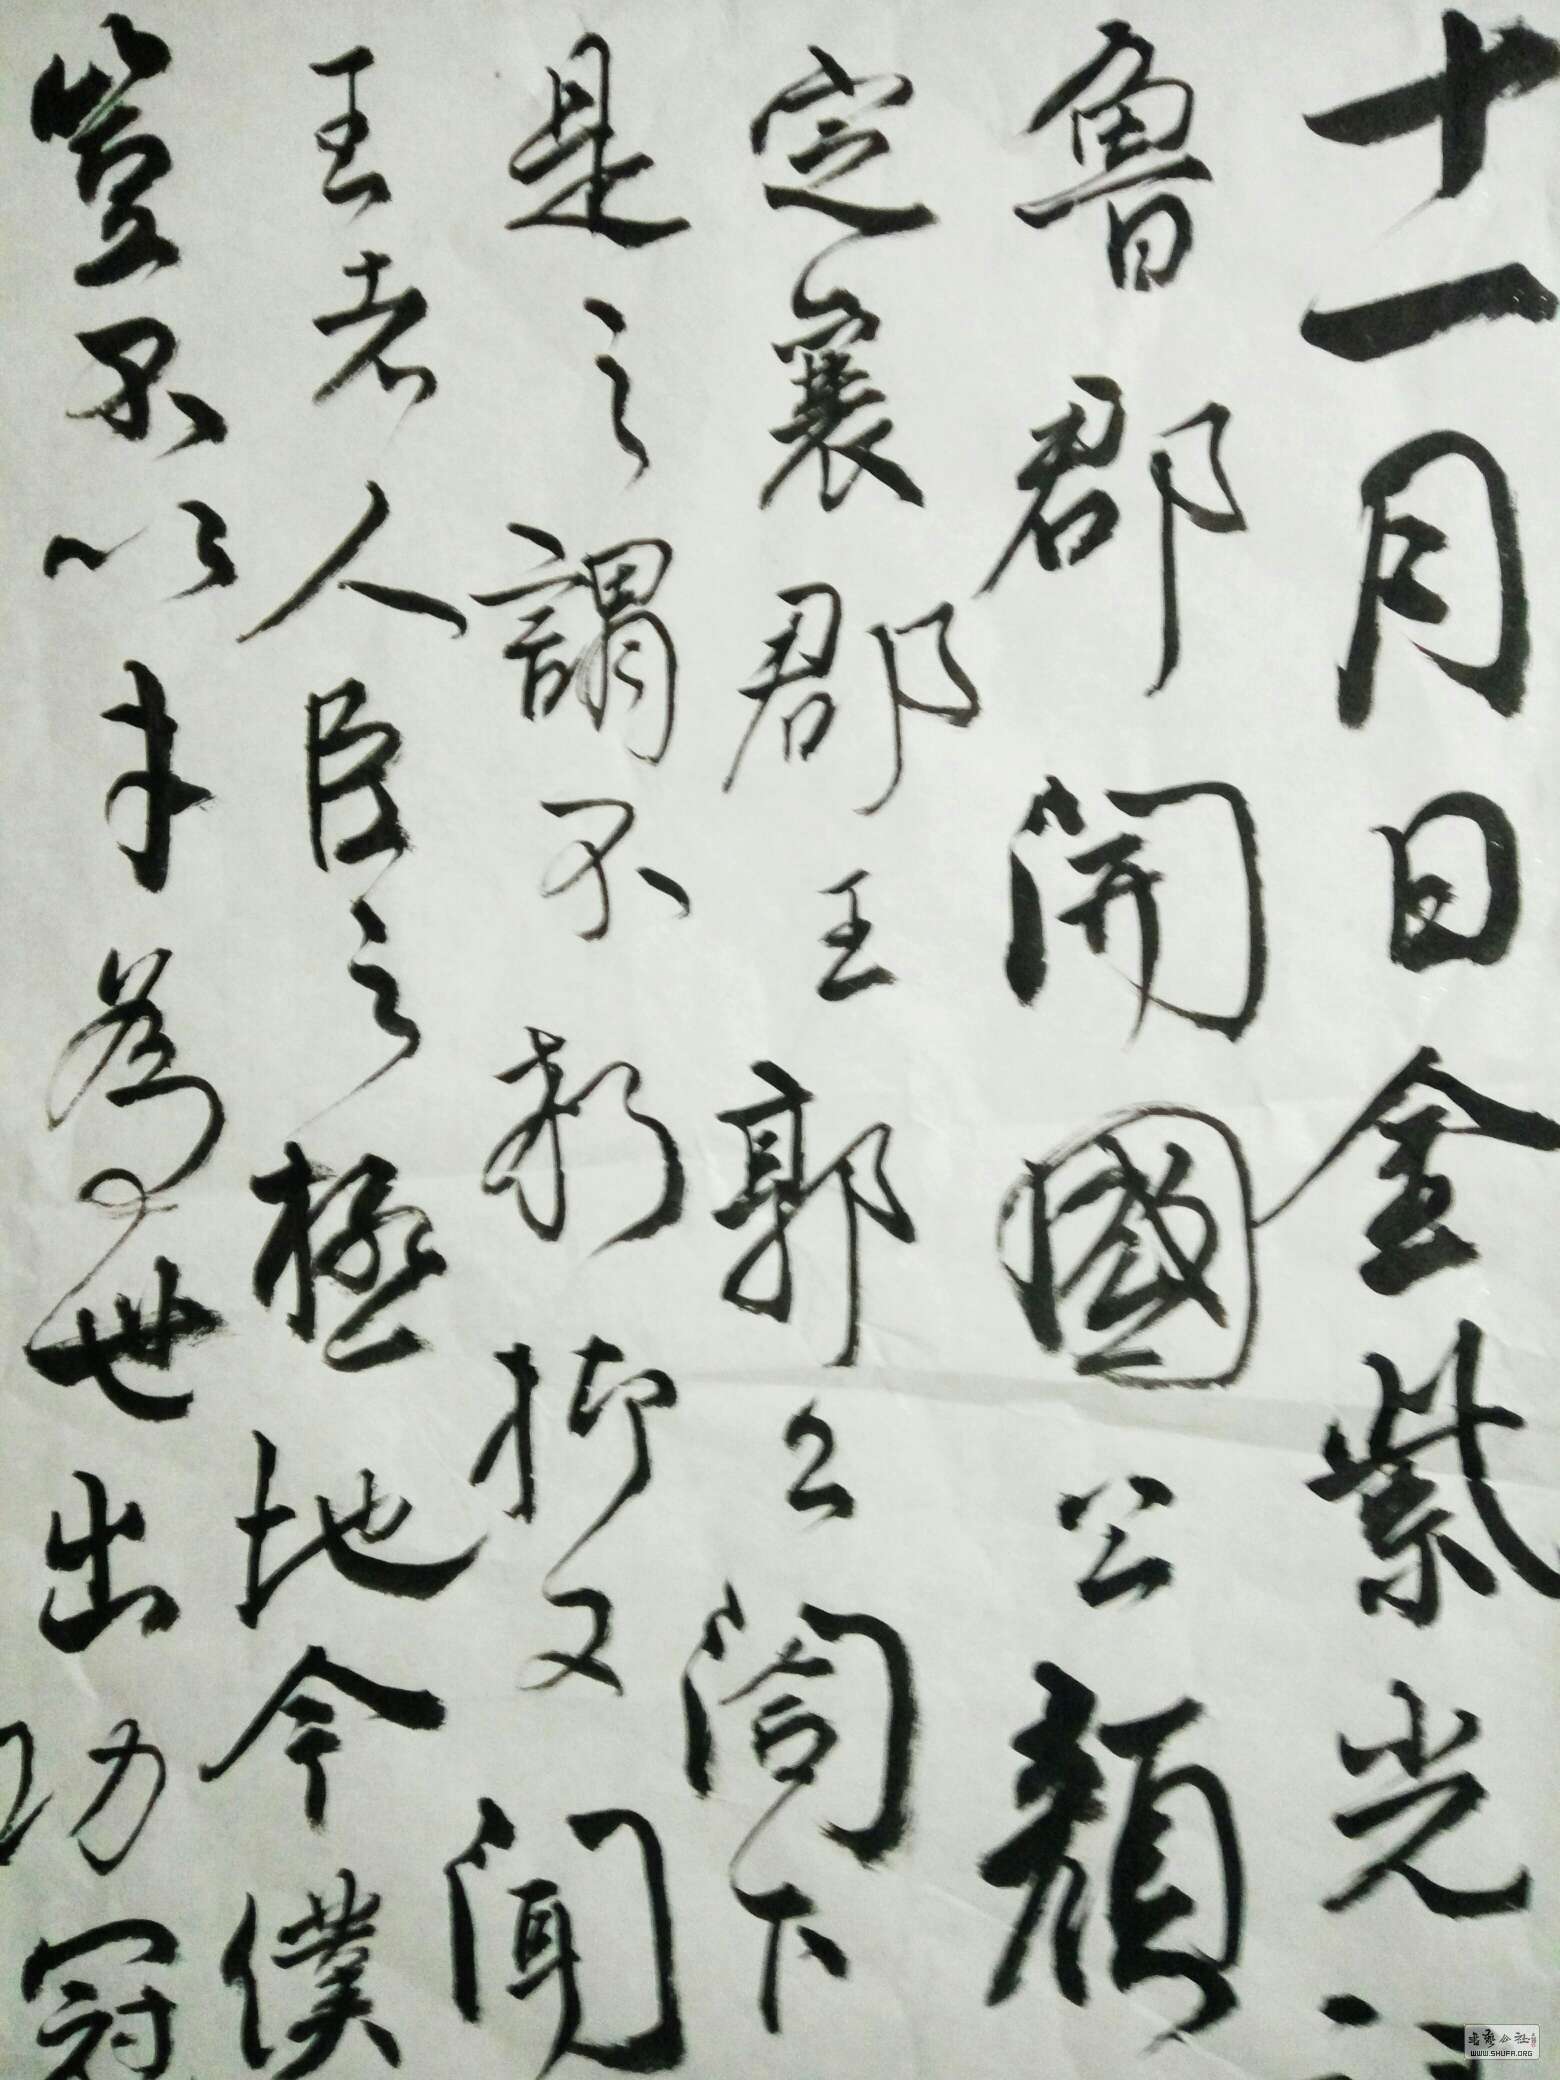 十一月日金紫光
魯郡開國公顏
定襄郡王郭公閤下
是之謂不朽抑又聞
王者人臣之極地今僕
豈不以才為世出功冠
书艺公社
WWW.SHUFA.ORG